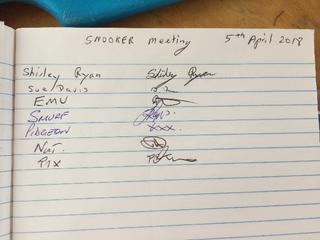 SNOOKER Meeting 5th April 2018
Shirley Ryan Shirley Ryan
Sue Davis
EMU
SMURF
PIDGEON xxx.
Nat.
PIX